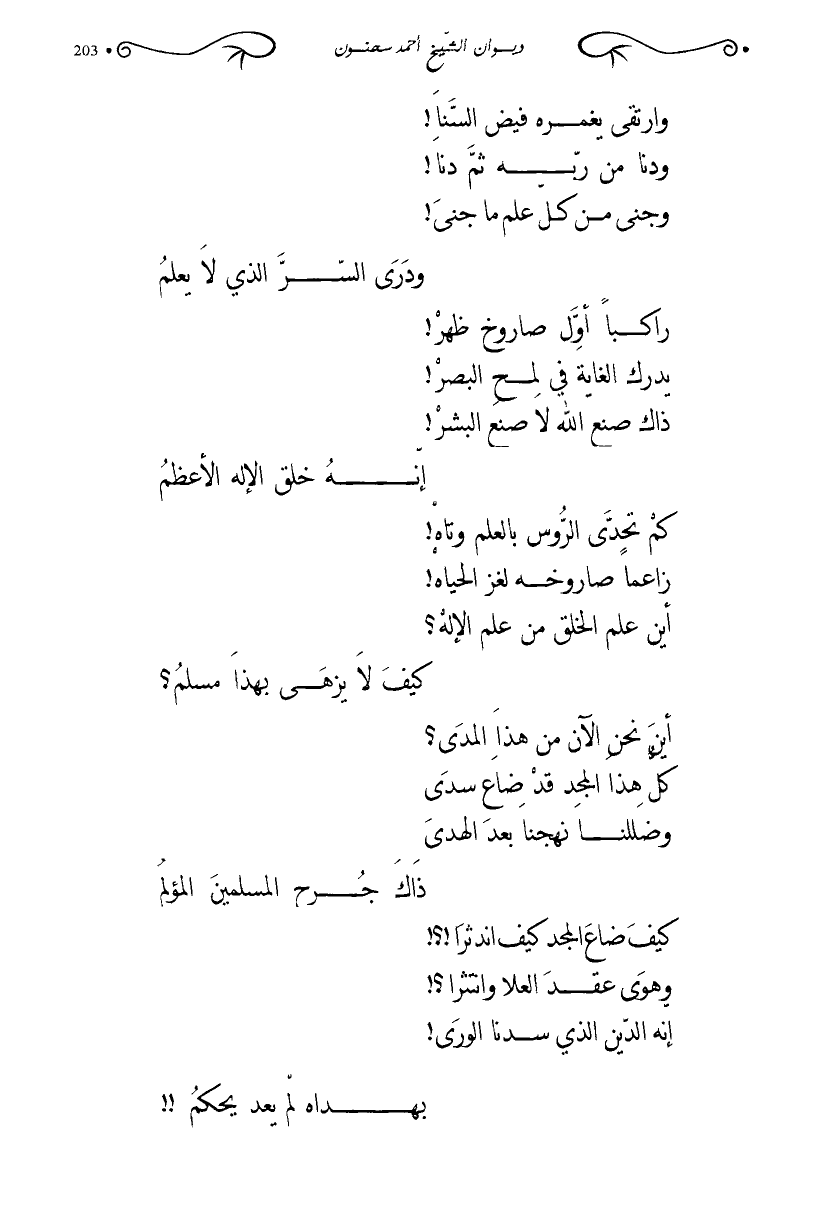 ديوان الشيخ أحمد سحنون 203
وارتقى يغمره فيض السَّنا!
ودنا من ربّه ثمَّ دنا!
وجنى من كل علم ما جنىَ!
ودَرَى السّرَّ الذي لاَ يعلمُ
راكباً أوَّل صاروخ ظهرْ!
يدرك الغاية في لمح البصرْ!
ذاك صنع الله لاَ صنعَ البشرْ!
إنّهُ خلق الإله الأعظمُ
كمْ تحدَّى الرُّوس بالعلم وتاهْ!
زاعما صاروخه لغز الحياه!
أين علم الخلق من علم الإلهْ؟
كيفَ لاَ يزهَى بهذاَ مسلمُ؟
أينَ نحنِ الآن من هذاَ المدَى؟
كل هذا المجد قدْ ضاع سدَى
وضللنا نهجنا بعدَ الهدىَ
ذَاكَ جُرح المسلمينَ المؤلمُ
كيفَ ضاعَ المجد كيف اندثرَا !؟!
وهوَى عقدَ العلا وانتثرا ؟!
إنه الدّين الذي سدنا الورَى!
بهداه لمّ يعد يحكمُ !!